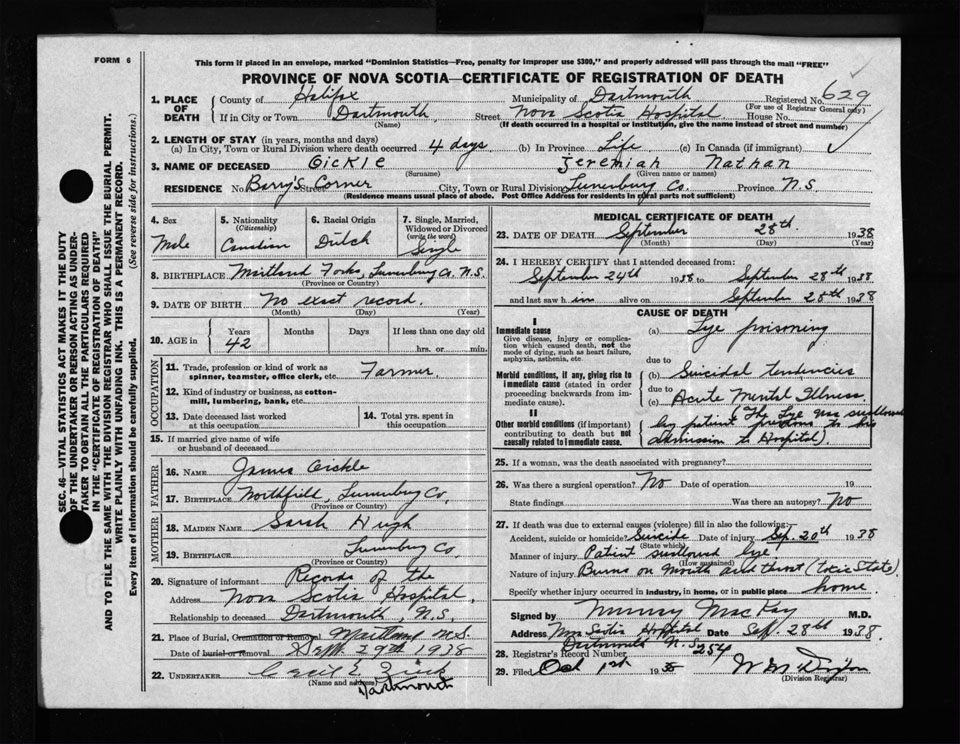 FORM 6
This form if placed in an envelope, marked "Dominion Statistics—Free, penalty for improper use $300," and properly addressed will pass through the mail "FREE"
PROVINCE OF NOVA SCOTIA—CERTIFICATE OF REGISTRATION OF DEATH
SEC. 46—VITAL STATISTICS ACT MAKES IT THE DUTY
OF THE UNDERTAKER OR PERSON ACTING AS UNDER-
TAKER TO OBTAIN ALL THE PARTICULARS REQUIRED
IN THE "CERTIFICATE OF REGISTRATION OF DEATH"
AND TO FILE THE SAME WITH THE DIVISION REGISTRAR WHO SHALL ISSUE THE BURIAL PERMIT.
WRITE PLAINLY WITH UNFADING INK. THIS IS A PERMANENT RECORD.
Every item of information should be carefully supplied. (See reverse side for instructions.)
1. PLACE OF DEATH County of Halifax Municipality of Dartmouth Registered No. 629
(For use of Registrar General only)
If in City or Town Dartmouth Street Nova Scotia Hospital House No.
(Name) (If death occurred in a hospital or institution, give the name instead of street and number)
2. LENGTH OF STAY (in years, months and days)
(a) In City, Town or Rural Division where death occurred 4 days (b) In Province Life (c) In Canada (if immigrant)
3. NAME OF DECEASED Oickle Jeremiah Nathan
(Surname) (Given name or names)
RESIDENCE No. Barry's Corner Street City, Town or Rural Division Lunenburg Co. Province N.S.
(Residence means usual place of abode. Post Office Address for residents in rural parts not sufficient)
4. Sex Male
5. Nationality (Citizenship) Canadian
6. Racial Origin Dutch
7. Single, Married, Widowed or Divorced (write the word) Single
8. BIRTHPLACE Maitland Forks, Lunenburg Co. N.S.
(Province or Country)
9. DATE OF BIRTH No exact record.
(Month) (Day) (Year)
10. AGE in Years 42 Months Days If less than one day old
hrs. or min.
OCCUPATION
11. Trade, profession or kind of work as spinner, teamster, office clerk, etc. Farmer.
12. Kind of industry or business, as cotton-mill, lumbering, bank, etc.
13. Date deceased last worked at this occupation
14. Total yrs. spent in this occupation
15. If married give name of wife or husband of deceased
FATHER
16. NAME James Oickle
17. BIRTHPLACE Northfield, Lunenburg Co.
(Province or Country)
MOTHER
18. MAIDEN NAME Sarah Hugh
19. BIRTHPLACE Lunenburg Co.
(Province or Country)
20. Signature of informant Records of the
Address Nova Scotia Hospital,
Relationship to deceased Dartmouth, N.S.
21. Place of Burial, Cremation or Removal Maitland N.S.
Date of burial or removal Sept. 29th 1938
22. UNDERTAKER
(Name and address) Dartmouth
MEDICAL CERTIFICATE OF DEATH
23. DATE OF DEATH September 28th 1938
(Month) (Day) (Year)
24. I HEREBY CERTIFY that I attended deceased from:
September 24th 1938 to September 28th 1938
and last saw him alive on September 28th 1938
CAUSE OF DEATH
I
Immediate cause (a) Lye poisoning
Give disease, injury or complication which caused death, not the mode of dying, such as heart failure, asphyxia, asthenia, etc.
due to
Morbid conditions, if any, giving rise to immediate cause (stated in order proceeding backwards from immediate cause). (b) Suicidal tendencies
due to
(c) Acute Mental Illness.
II
Other morbid conditions (if important) contributing to death but not causally related to immediate cause.
(The Lye was swallowed
by patient previous to his
admission to Hospital).
25. If a woman, was the death associated with pregnancy?
26. Was there a surgical operation? No Date of operation 19
State findings Was there an autopsy? No
27. If death was due to external causes (violence) fill in also the following:
Accident, suicide or homicide? Suicide Date of injury Sep. 20th 1938
(State which)
Manner of injury Patient swallowed lye
(How sustained)
Nature of injury Burns on mouth and throat (toxic state)
Specify whether injury occurred in industry, in home, or in public place home
Signed by Murray MacKay M.D.
Address Nova Scotia Hospital Date Sept. 28th 1938.
Dartmouth N.S.
28. Registrar's Record Number 254
29. Filed Oct 1st 1938
(Division Registrar)